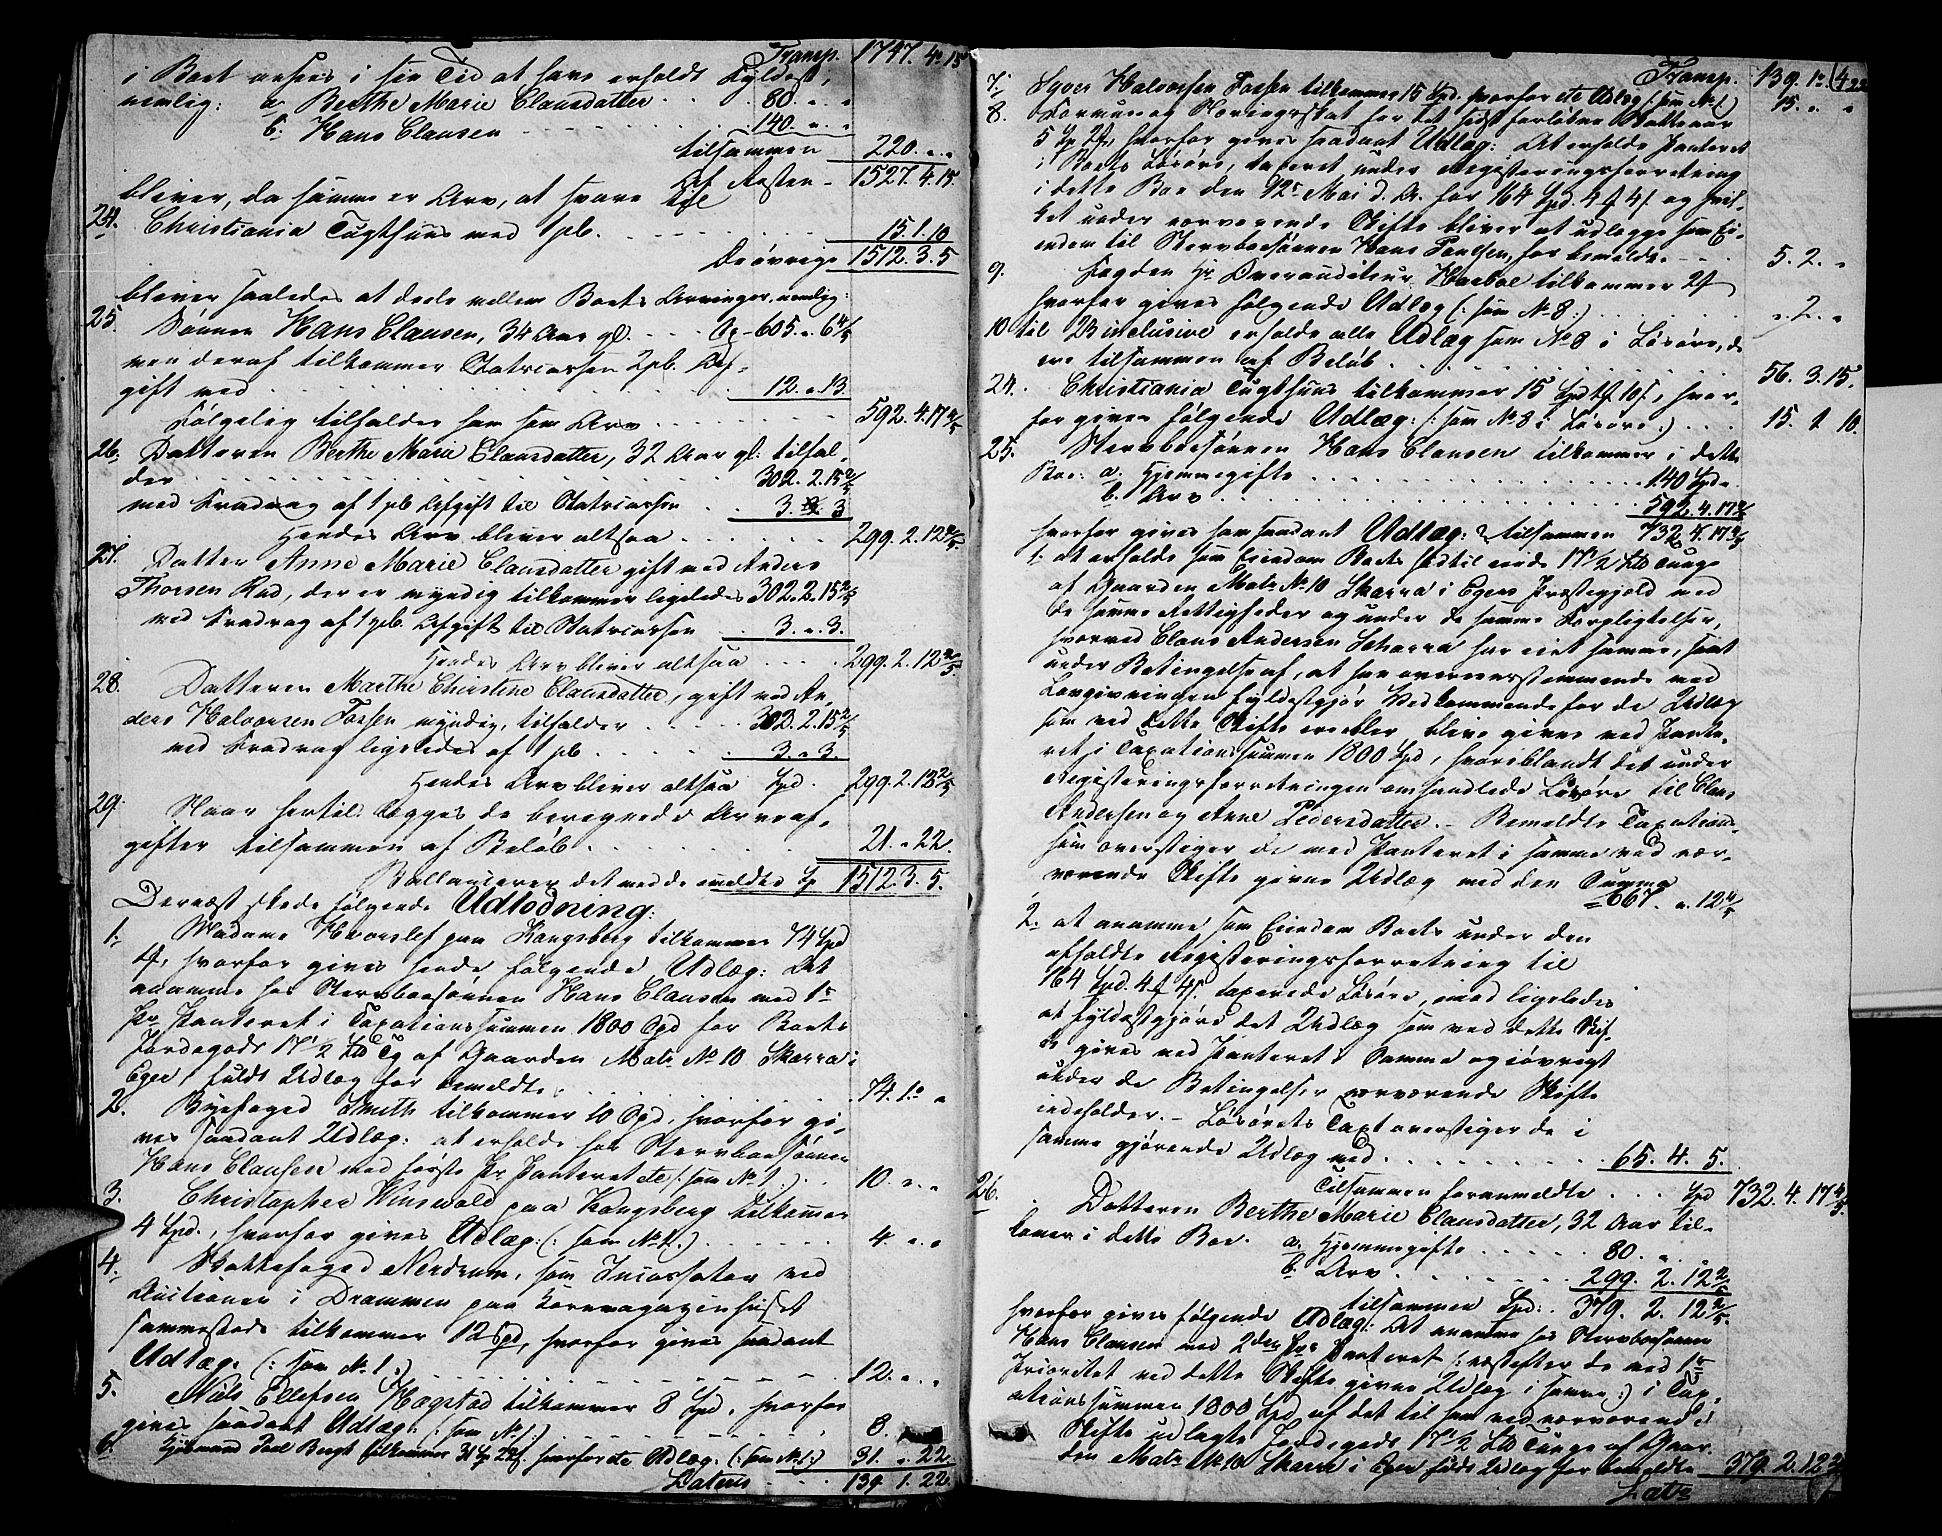 Transp. 1747. 4. 15
i Boet ansees i sin Tid at have erholdt Fyldest,
nemlig: a. Berthe Marie Clausdatter . . . 80. „ „
b. Hans Clausen - - - - - - 140. „ „
tilsammen 220. „ „
Af Resten - 1527. 4. 15.
bliver, da samme er Arv, at svare til
24. Christiania Tugthuus med 1 pb. . . . . 15. 1. 10
De øvrige 1512. 3. 5
bliver saaledes at dele mellem Boets Arvinger, nemlig:
25. Sønnen Hans Clausen, 34 Aar gl. . . . 605. „ 6 4/5
men deraf tilkommer Statscassen 2 pb. Af-
gift med . . . . . 12. „ 13.
Følgelig tilfalder ham som Arv . . . . . 592. 4. 17 4/5
26. Datteren Berthe Marie Clausdatter, 32 Aar gl: tilfal-
der . . . . . 302. 2. 15 2/5
med Fradrag af 1 pb Afgift til Statscassen . . 3. „ 3
Hendes Arv bliver altsaa . . . . . 299. 2. 12 2/5
27. Datter Anne Marie Clausdatter gift med Anders
Thorsen Rud, der er myndig tilkommer ligeledes 302. 2. 15 2/5
med Fradrag af 1 pb. Afgift til Statscassen . 3. „ 3.
Hendes Arv bliver altsaa . . . . 299. 2. 12 2/5
28. Datteren Marthe Christine Clausdatter, gift med An-
ders Halvorsen Fossen myndig, tilfalder . . . 302. 2. 15 2/5
med Fradrag ligeledes af 1 pb . . . . . 3. „ 3.
Hendes Arv bliver altsaa Spd. 299. 2. 12 2/5
29. Naar hertil lægges de beregnede Arveaf-
gifter tilsammen af Beløb . . . . . 21. „ 22.
Ballancerer det med de anmeldte Sp 1512. 3. 5.
Dernæst skede følgende Udlodning:
1. Madame Hvorslef paa Kongsberg tilkommer 74 Spd
1 f, hvorfor gives hende følgende Udlæg: At
annamme hos Stervboesønnen Hans Clausen med 1ste
Pr. Panteret i Taxationssummen 1800 Spd for Boets
Jordegods 17 1/2 Ltb Tg af Gaarden Matr. No 10 Skarra i
Eger, fuldt Udlæg for bemeldte . . . . . 74. 1. „
2. Byefoged Smith tilkommer 10 Spd, hvorfor gi-
ves saadant Udlæg: at erholde hos Stervboesønnen
Hans Clausen med første Pr. Panteret etc (: som No 1 :) . . 10. „ „
3. Christopher Winswold paa Kongsberg tilkommer
4 Spd., hvorfor gives Udlæg: (: som No 1. :) . . . . . 4. „ „
4. Skattefoged Nerdrum, som Incassator ved
Auctioner i Drammen paa Kornmagazinhuset
sammesteds tilkommer 12 Spd, hvorfor gives saadant
Udlæg: (: som No 1 :) . . . . . 12. „ „
5. Niels Ellefsen Hægstad tilkommer 8 Spd, hvorfor
gives saadant Udlæg: (: som No 1 :) . . . . . 8.
6. Kjøbmand Poul Bergh tilkommer 31 Sp 22 s. hvorfor etc Udlæg: (: som No 1 :) 31. „ 22.
Lateris . . . 139. 1. 22.
Transp. 139. 1. 22
7. Syver Halvorsen Fossen tilkommer 15 Spd. hvorfor etc Udlæg (: som No 1 :) 15. „ „
8. Formue og Næringsskat for det sidst forløbne Skatteaar
5 Sp 2 f, hvorfor gives saadant Udlæg: At erholde Panteret
i Boets Løsøre, taxeret under Registeringsforretning
i dette Boe den 12te Mai d. A. for 164 Spd. 4 f 4 s. og hvil-
ket under nærværende Skifte bliver at udlægge som Ei-
endom til Stervboesønnen Hans Clausen, for bemeldte . . . 5. 2. „
9. Fogden Hr Overauditeur Horboe tilkommer 2 f
hvorfor gives følgende Udlæg (: som No 8 :) . . . . . „ 2. „
10 til 23 inclusive erholde alle Udlæg som No 8 i Løsøre, de
ere tilsammen af Beløb . . . . . 56. 3. 15.
24. Christiania Tugthuus tilkommer 15 Spd 1 f. 10 s., hvor-
for gives følgende Udlæg: (: som No 8 i Løsøre :) . . . 15. 1 10.
25. Stervboesønnen Hans Clausen tilkommer i dette
Boe: a. Hjemmegifte . . . . . 140 Spd „
b. Arv . . . . . 592. 4. 17 4/5
hvorfor gives ham saadant Udlæg: tilsammen 732. 4. 17 4/5
1. at erholde som Eiendom Boets fædtilerende 17 1/2 Ltb Tunge
af Gaarden Matr. No 10 Skarra i Egers Præstegjeld med
de samme Rettigheder og under de samme Forpligtelser,
hvormed Claus Andersen Scharra har eiet samme, samt
under Betingelse af, at han overeensstemmende med
Lovgivningen fyldestgjør Vedkommende for de Udlæg
som ved dette Skifte ere eller blive givne med Pante-
ret i Taxationssummen 1800 Spd, hvoriblandt det under
Registeringsforretningen omhandlede Løsøre til Claus
Andersen og Anne Pedersdatter. - Bemeldte Taxations-
sum overstiger de med Panteret i samme ved nær-
værende Skifte givne Udlæg med den Summa 667. „ 12 4/5
2. at annamme som Eiendom Boets under den
afholdte Registeringsforretning til
164 Spd. 4 f 4 s. taxerede Løsøre, mod ligeledes
at fyldestgjøre det Udlæg som ved dette Skif-
te gives med Panteret i Samme og iøvrigt
under de Betingelser nærværende Skifte
indeholder. - Løsørets Taxt overstiger de i
samme gjørende Udlæg med . . . . . 65. 4. 5.
Tilsammen foranmeldte . . . Spd 732. 4. 17 4/5
26. Datteren Berthe Marie Clausdatter, 32 Aar til-
kommer i dette Boe. a. Hjemmegifte . . . . . 80. „
b. Arv . . . . . 299. 2. 12 2/5
tilsammen Spd: 379. 2. 12 2/5
hvorfor gives følgende Udlæg: At annamme hos Stervboesønnen
Hans Clausen med 2den Pr. Panteret (: næstefter de med 1ste
Prioritet ved dette Skifte givne Udlæg i samme :) i Tax-
ationssummen 1800 Spd af det til ham ved nærværende
Skifte udlagte Jordegods 17 1/2 Ltb Tunge af Gaar-
den Matr No 10 Skarra i Eger fuldt Udlæg for bemeldte 379. 2. 12 2/5
Lats